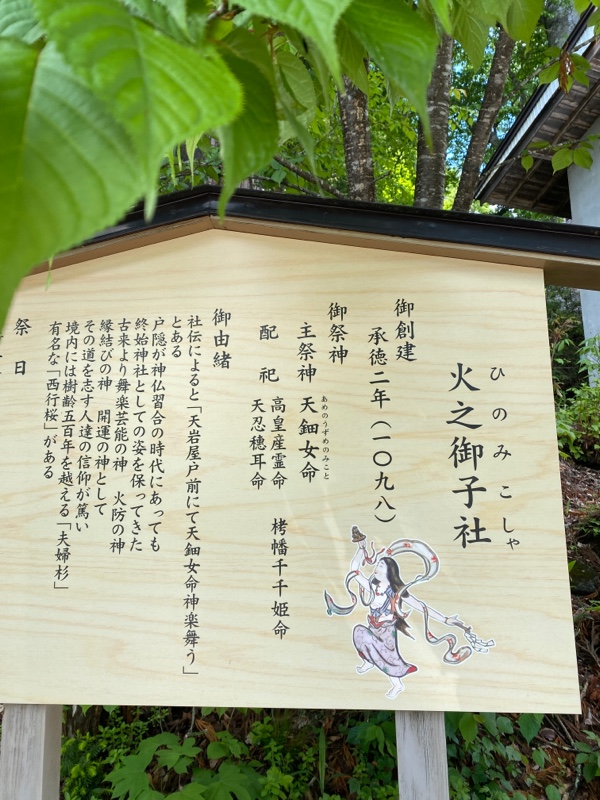 ひのみこしゃ
火之御子社
御創建
承徳二年（一〇九八）
御祭神
あめのうずめのみこと
主祭神 天鈿女命
配祀 高皇産霊命 栲幡千千姫命
天忍穂耳命
御由緒
社伝によると「天岩屋戸前にて天鈿女命神楽舞う」
とある
戸隠が神仏習合の時代にあっても
終始神社としての姿を保ってきた
古来より舞楽芸能の神 火防の神
縁結びの神 開運の神として
その道を志す人達の信仰が篤い
境内には樹齢五百年を越える「夫婦杉」
有名な「西行桜」がある
祭日